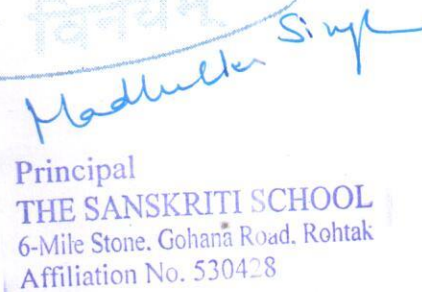 विनयम्
Madhulika Singh
Principal
THE SANSKRITI SCHOOL
6-Mile Stone. Gohana Road. Rohtak
Affiliation No. 530428